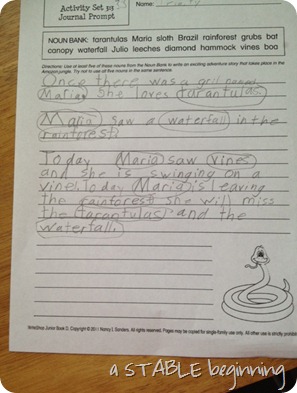 Activity Set 3:3
Journal Prompt
Name:
NOUN BANK: tarantulas Maria sloth Brazil rainforest grubs bat
canopy waterfall Julio leeches diamond hammock vines boa
Directions: Use at least five of these nouns from the Noun Bank to write an exciting adventure story that takes place in the
Amazon jungle. Try not to use all five nouns in the same sentence.
Once there was a gril named
Maria. She loves tarantulas
Maria saw a waterfall in the
rainforest.
Today Maria saw vines
and she is swinging on a
vine. Today Maria is leaving
the rainforest she will miss
the tarantulas and the
waterfall.
WriteShop Junior Book D. Copyright © 2011 Nancy I. Sanders. All rights reserved. Pages may be copied for single-family use only. All other use is strictly prohibited
a STABLE beginning